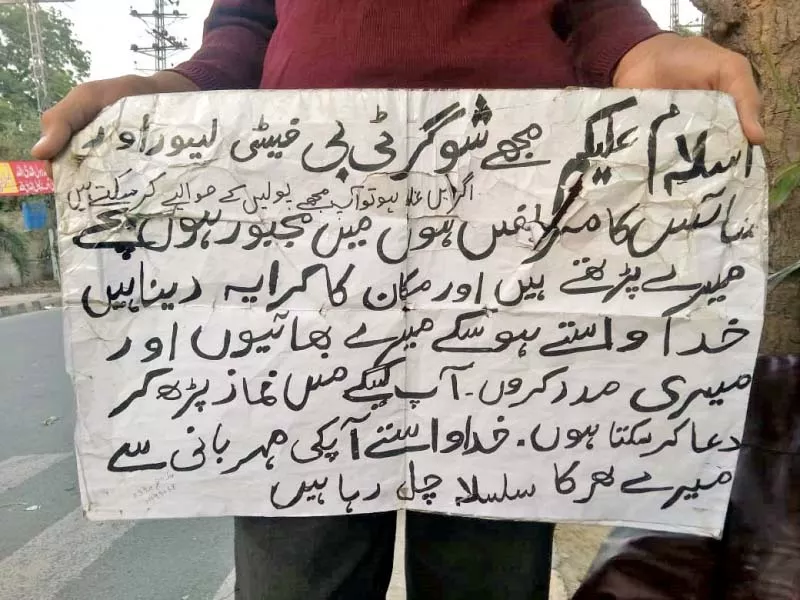 اسلام علیکم مجھے شوگر ٹی بی فیٹی لیور اور
اگر میں غلط ہو تو آپ مجھے پولیس کے حوالے کر سکتے ہیں
کا مریض ہوں میں مجبور ہوں بچے
میرے پڑھتے ہیں اور مکان کا کرایہ دینا ہیں
خدا واستے ہو سکے میرے بھائیوں اور
میری مدد کروں۔ آپ کیلئے میں نماز پڑھ کر
دعا کر سکتا ہوں۔ خدا واستے آپکی مہربانی سے
میرے گھر کا سلسلا چل رہا ہیں